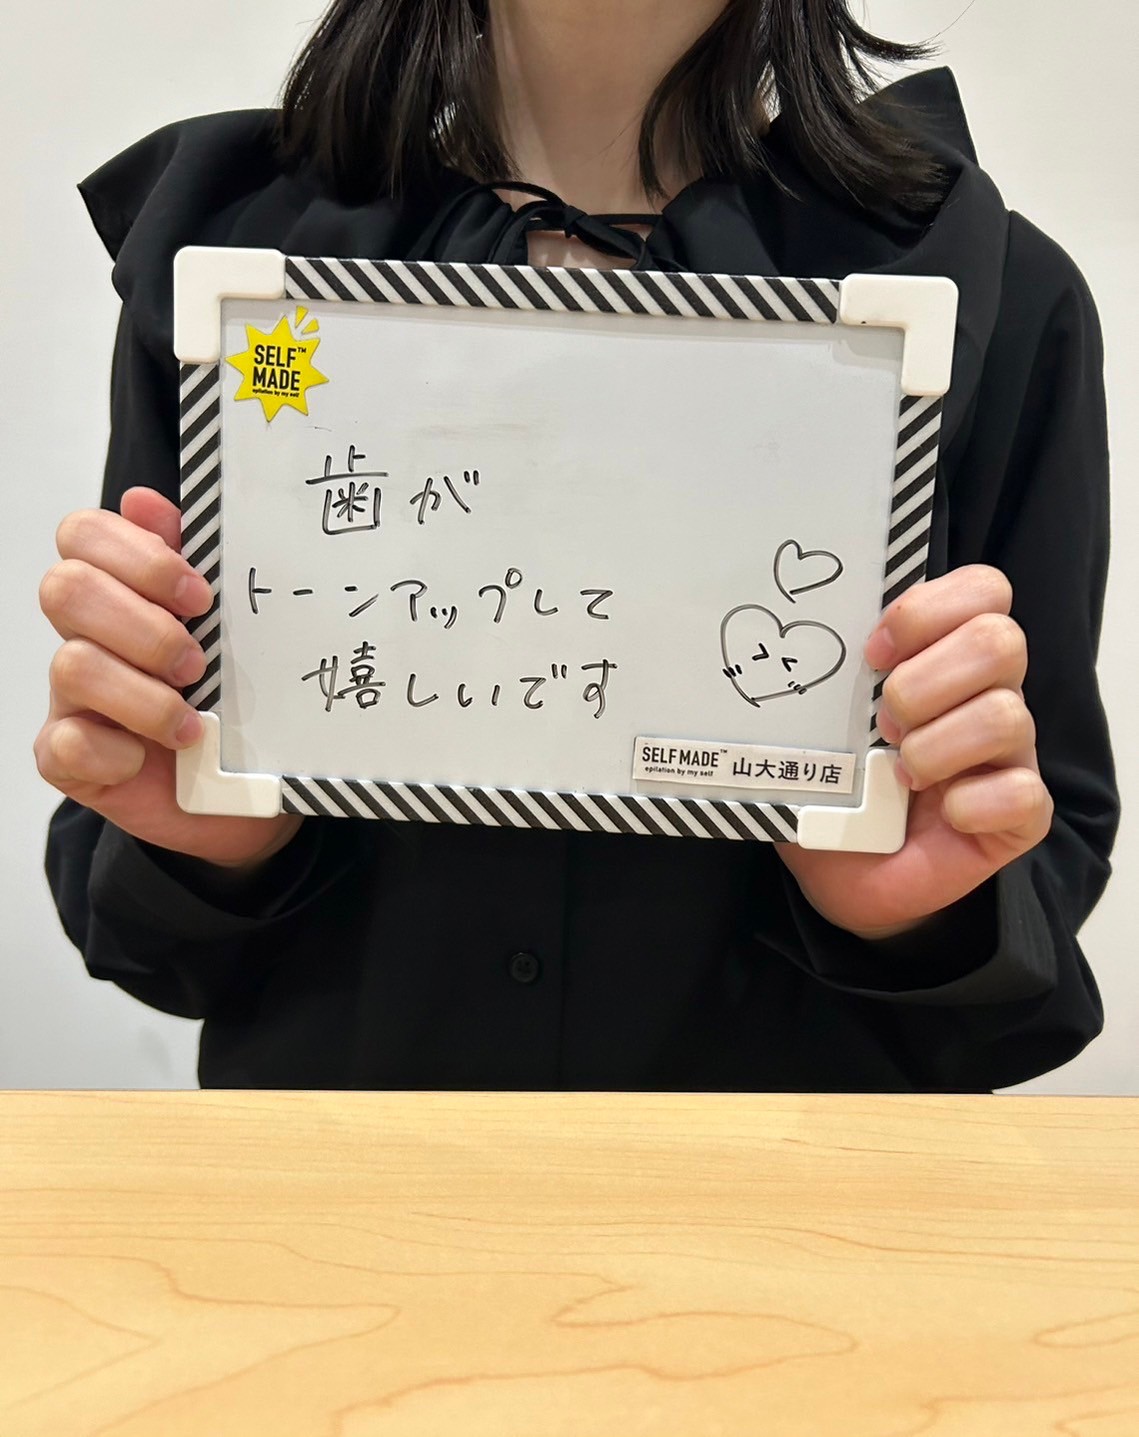 SELF™
MADE
epilation by my self
歯が
トーンアップして
嬉しいです
SELF MADE™
epilation by my self
山大通り店